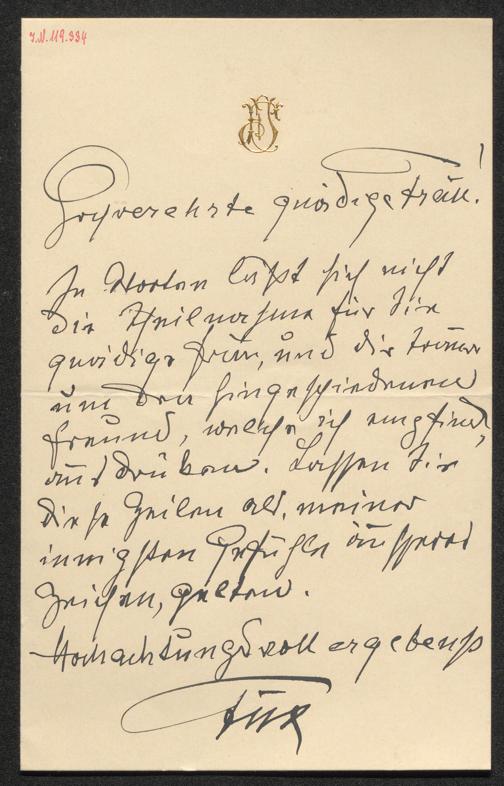 I.N. 119.334
Hochverehrte gnädige Frau!
In Worten läßt sich nicht
die Theilnahme für Sie
gnädige Frau, und die Trauer
um den hingeschiedenen
Freund, welche ich empfinde,
ausdrüken. Lassen Sie
diese Zeilen als, meiner
innigsten Gefühle äusseres
Zeichen, gelten.
Hochachtungsvoll ergebenst